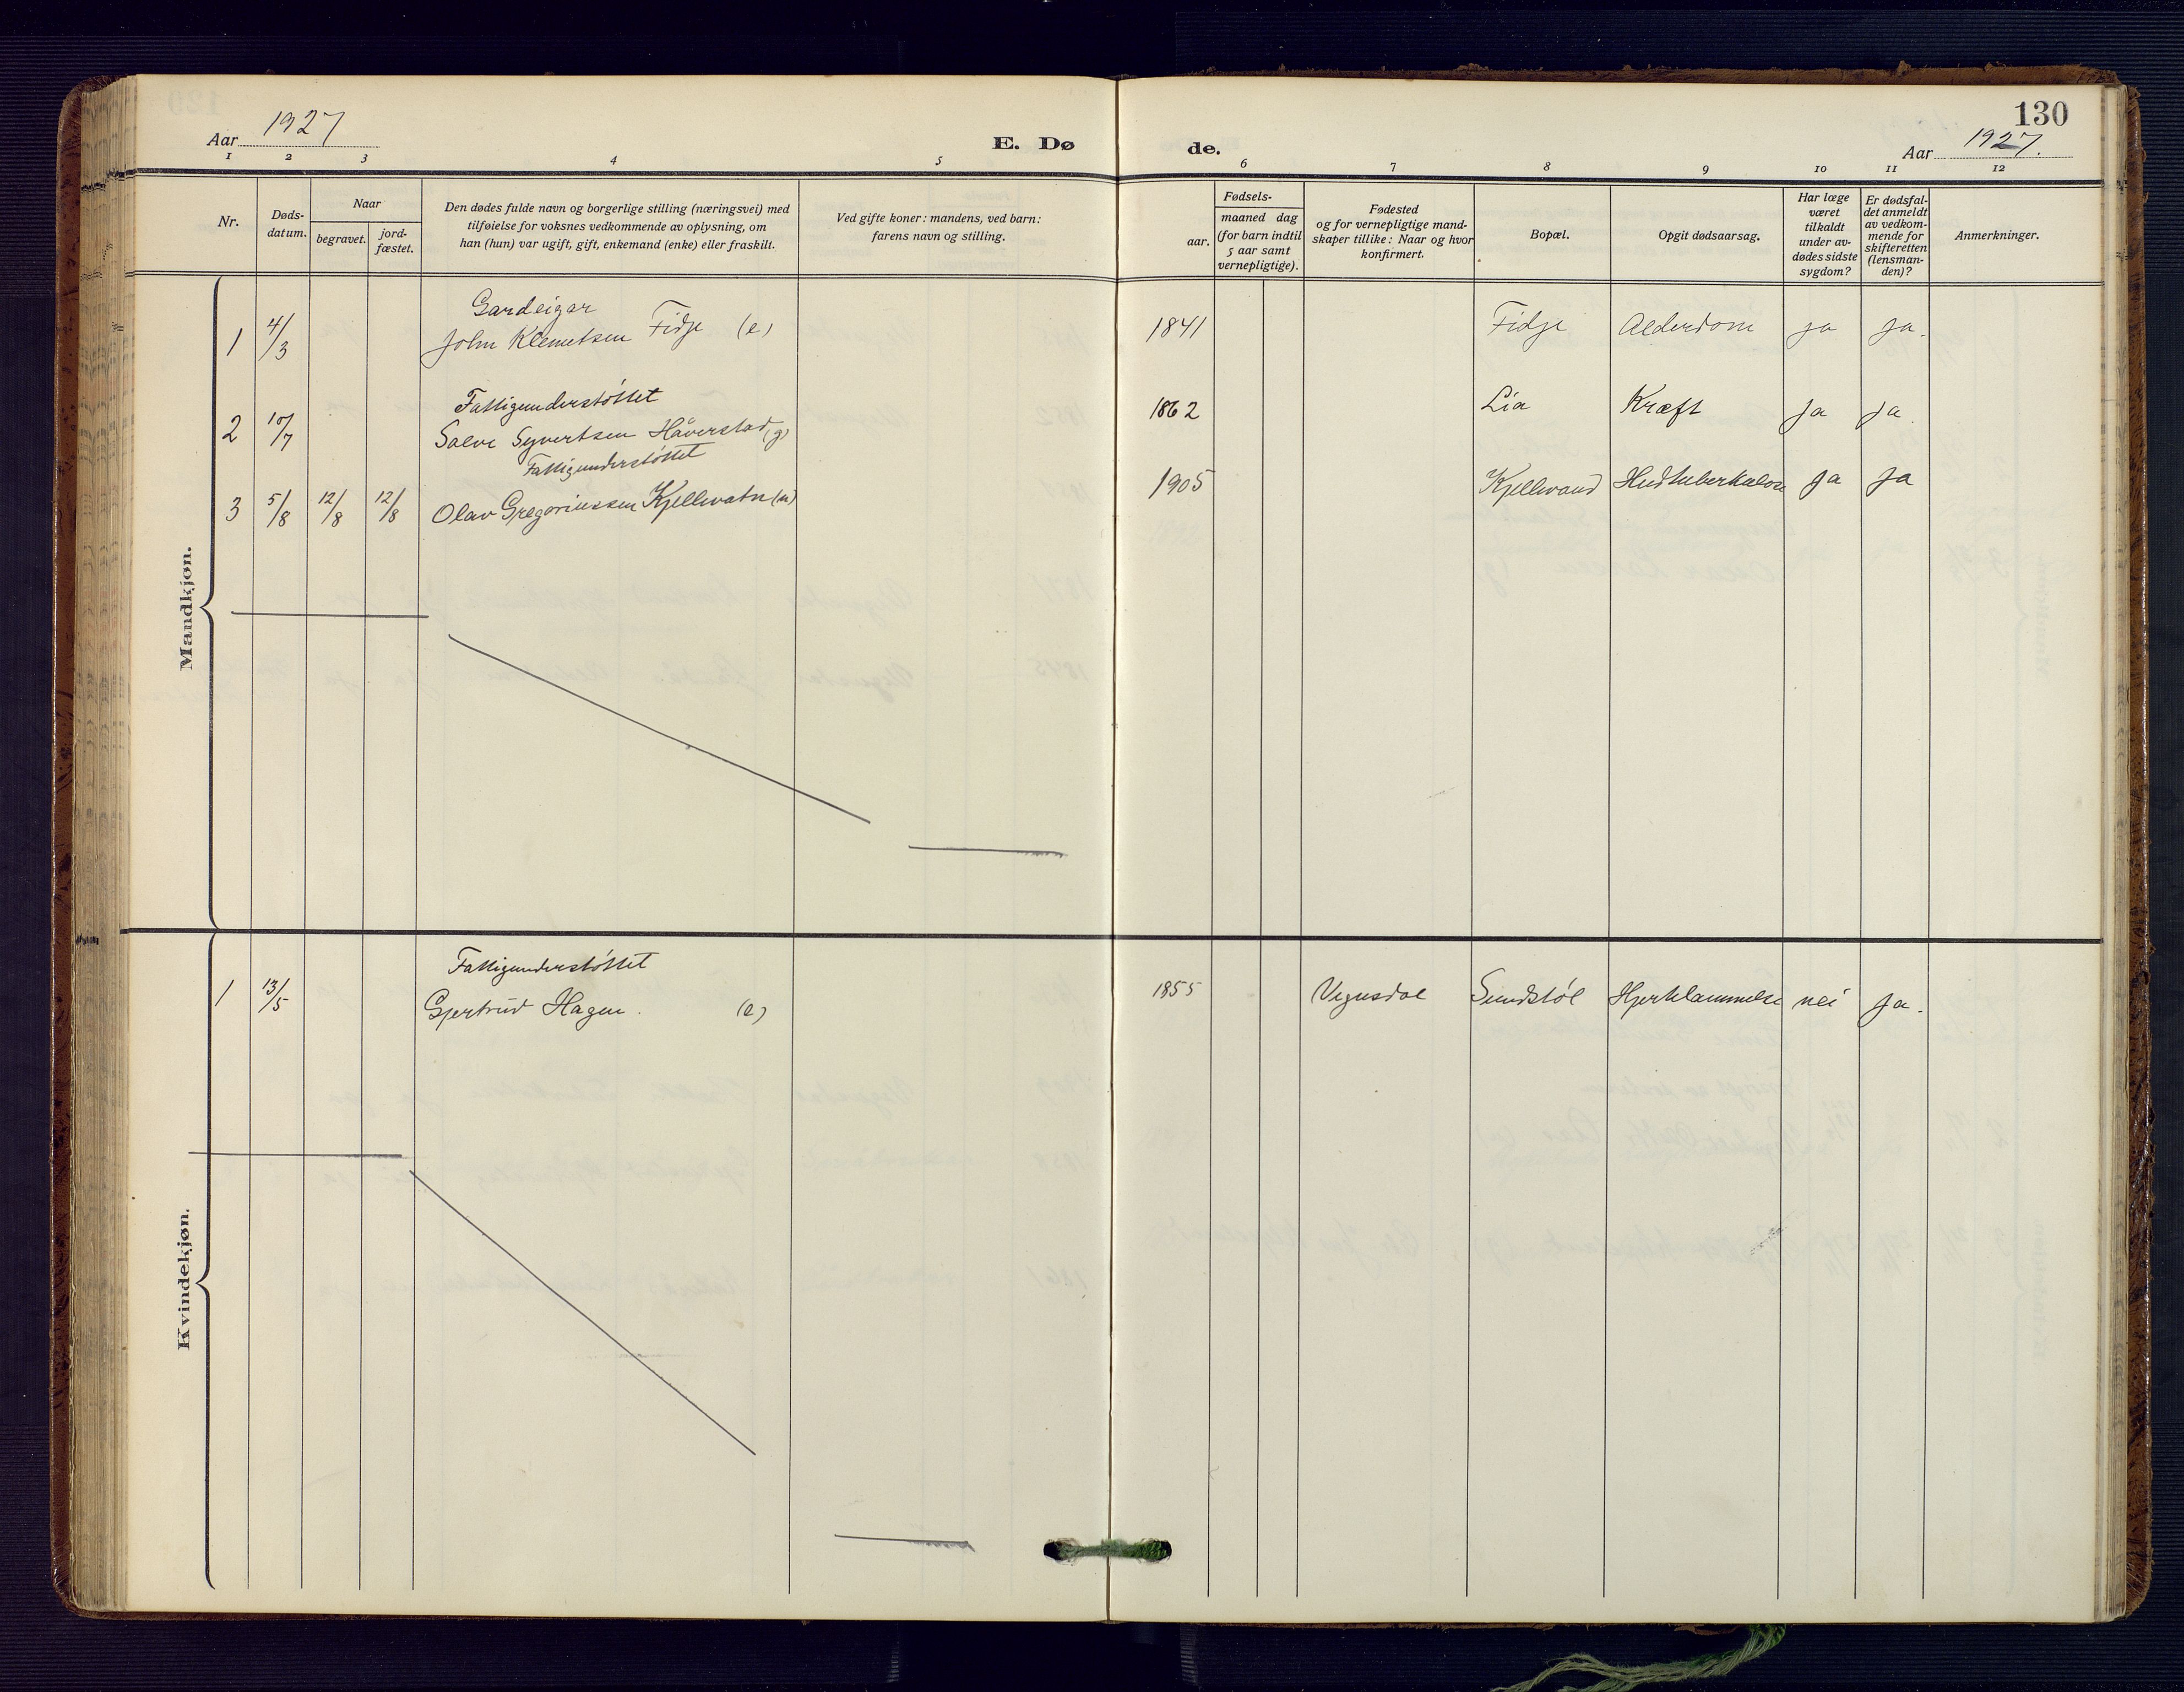 Aar 1927
E. Dø
de.
130
Aar 1927.
1 2 3 4 5 6 7 8 9 10 11 12
Nr.
Døds-
datum.
Naar
begravet.
jord-
fæstet.
Den dødes fulde navn og borgerlige stilling (næringsvei) med
tilføielse for voksnes vedkommende av oplysning, om
han (hun) var ugift, gift, enkemand (enke) eller fraskilt.
Ved gifte koner: mandens, ved barn:
farens navn og stilling.
Fødsels-
aar.
maaned dag
(for barn indtil
5 aar samt
vernepligtige).
Fødested
og for vernepligtige mand-
skaper tillike: Naar og hvor
konfirmert.
Bopæl.
Opgit dødsaarsag.
Har læge
været
tilkaldt
under av-
dødes sidste
sygdom?
Er dødsfal-
det anmeldt
av vedkom-
mende for
skifteretten
(lensman-
den)?
Anmerkninger.
Mandkjøn.
Gardeigar
1 4/3 John Klemetsen Fidje (e) 1841 Fidje Alderdom ja ja.
Fattigunderstöttet
2 10/7 Salve Syvertsen Håverstad (g) 1862 Lia Kræft ja ja
Fattigunderstöttet
3 5/8 12/8 12/8 Olav Gregoriussen Kjellevatn (u) 1905 Kjellevand Hudtuberkulose ja ja
Kvindekjøn.
Fattigunderstöttet
1 13/5 Gjertrud Hagen. (e) 1855 Vegusdal Sundstøl Hjertelammelse nei ja.